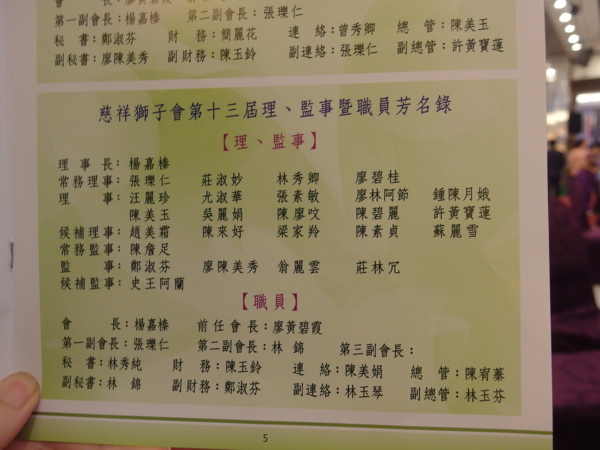 第一副會長：楊嘉榛　第二副會長：張瓅仁
秘　書：鄭淑芬　財　務：簡麗花　連　絡：曾秀卿　總　管：陳美玉
副秘書：廖陳美秀　副財務：陳玉鈴　副連絡：張瓅仁　副總管：許黃寶蓮
慈祥獅子會第十三屆理、監事暨職員芳名錄
【理、監事】
理　事　長：楊嘉榛
常務理事：張瓅仁　莊淑妙　林秀卿　廖碧桂
理　　　事：汪麗珍　尤淑華　張素敏　廖林阿節　鍾陳月娥
陳美玉　吳麗娟　陳廖呅　陳碧麗　許黃寶蓮
候補理事：趙美霜　陳來好　梁家羚　陳素貞　蘇麗雪
常務監事：陳詹足
監　　　事：鄭淑芬　廖陳美秀　翁麗雲　莊林冗
候補監事：史王阿蘭
【職員】
會　　　長：楊嘉榛　前任會長：廖黃碧霞
第一副會長：張瓅仁　第二副會長：林　錦　第三副會長：
秘　書：林秀純　財　務：陳玉鈴　連　絡：陳美娟　總　管：陳宥蓁
副秘書：林　錦　副財務：鄭淑芬　副連絡：林玉琴　副總管：林玉芬
5